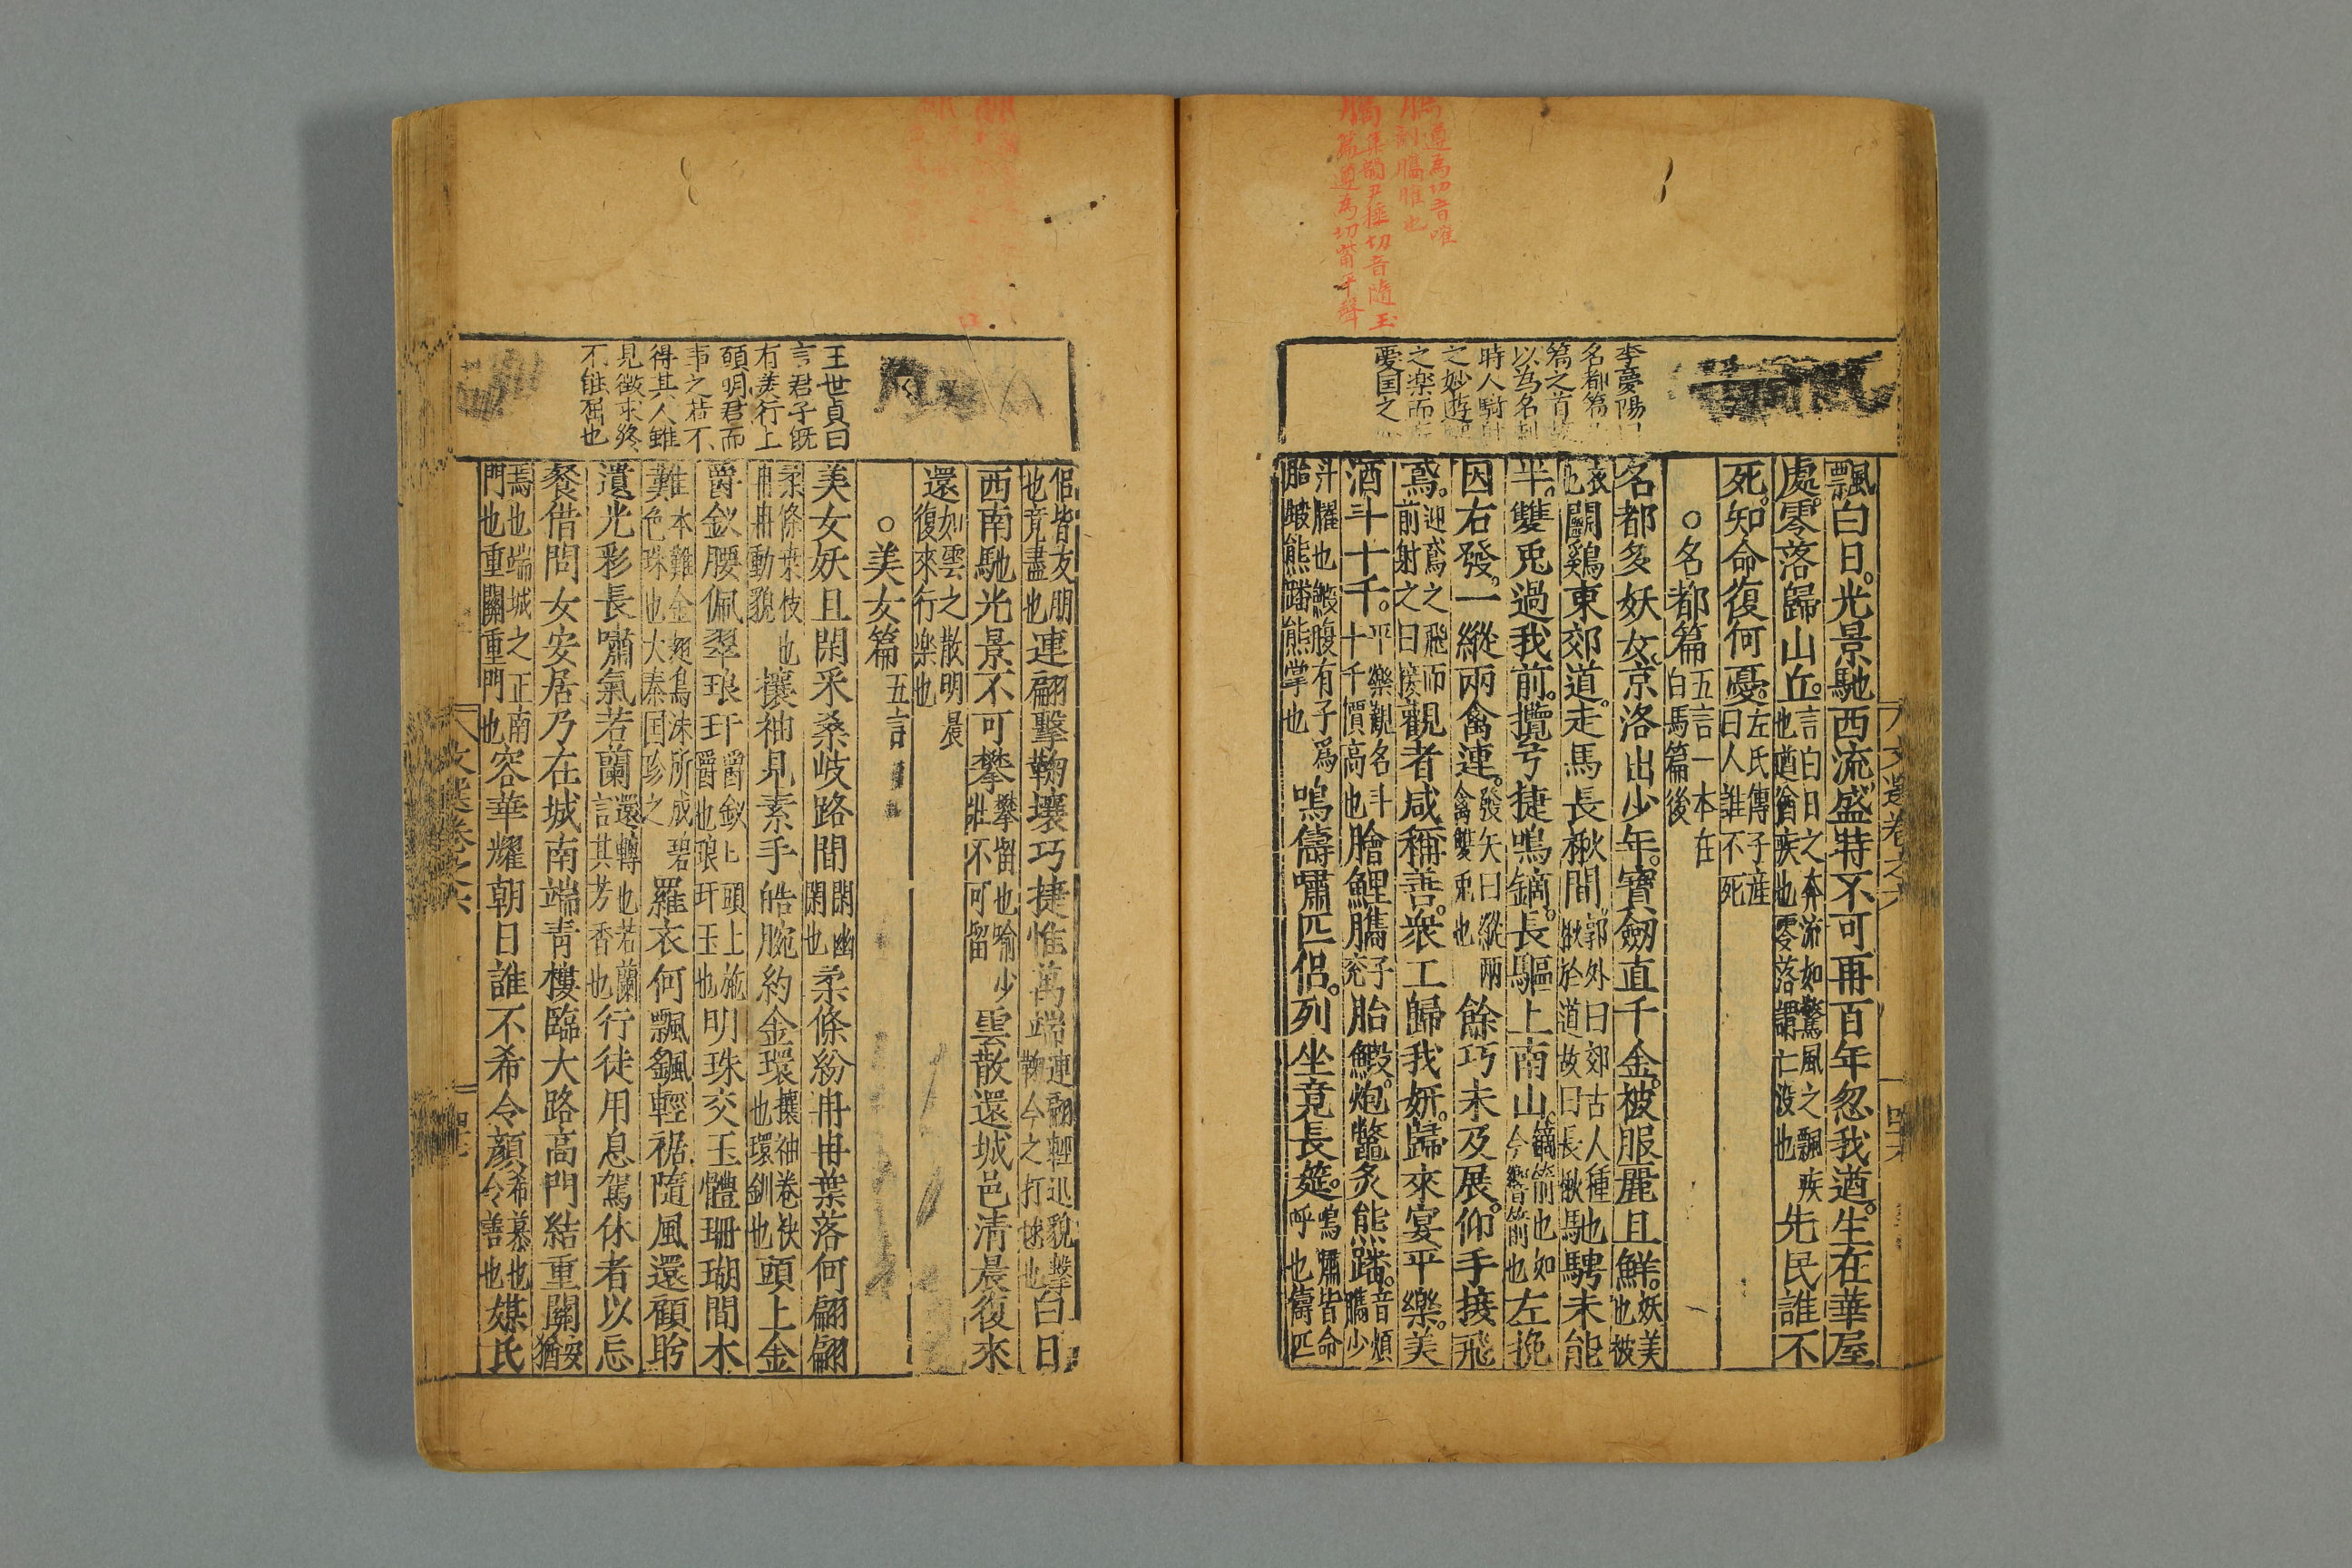 臇遵為切音嗺
臇臛也
玉
篇遵為切觜平聲
名都篇
篇之首
以為名
時人騎射
之妙遊
之楽而
愛国之
飄白日。光景馳西流。盛時不可再百年忽我遒。生在華屋
處。零落歸山丘。言白日之奔流如驚風之飄疾也遒猶疾也零落謂亡没也先民誰不
死。知命復何憂。左氏傳子産曰人誰不死
○名都篇五言一本在白馬篇後
名都多妖女。京洛出少年。寶劒直千金。被服麗且鮮。妖美也被
衣也鬭鷄東郊道。走馬長楸間。郭外曰郊古人種楸於道故曰長楸馳騁未能
半。雙兎過我前。攬弓捷鳴鏑。長驅上南山。鏑箭也如今響箭也左挽
因右發。一縱兩禽連。發矢曰縱兩禽雙兎也餘巧未及展。仰手接飛
鳶。迎鳶之飛而前射之曰接觀者咸稱善。衆工歸我妍。歸來宴平樂。美
酒斗十千。平樂觀名斗十千價高也膾鯉臇子兖胎鰕。炮鱉炙熊蹯。音煩臇少
汁臛也鰕腹有子爲胎鰕熊蹯熊掌也鳴儔嘯匹侣。列坐竟長筵。鳴嘯皆命呼也儔匹
文選卷之六
王世貞曰
言君子既
有美行上
願明君而
事之若不
得其人雖
見徵求終
不能屈也
侣皆友朋也竟盡也連翩擊鞠壤巧捷惟萬端連翩輕迅貌擊鞠今之打毬也白日
西南馳光景不可攀攀留也喻少壯不可留雲散還城邑清晨復來
還如雲之散明晨復來行楽也
○美女篇五言
美女妖且閑采桑岐路間閑幽閑也柔條紛冉冉葉落何翩翩
柔條桒枝也冉冉動貌攘袖見素手皓腕約金環攘袖卷袂也環釧也頭上金
爵釵腰佩翠琅玕爵釵上頭上施爵也琅玕玉也明珠交玉體珊瑚間木
難木難金翅鳥沫所成碧色珠也大秦国珍之羅衣何飄飖輕裾隨風還顧眄
遺光彩長嘯氣若蘭還轉也若蘭言其芳香也行徒用息駕休者以忘
餐借問女安居乃在城南端青樓臨大路高門結重關安猶
焉也端城之正南門也重關重門也容華耀朝日誰不希令顏希慕也令善也媒氏
文選卷之六